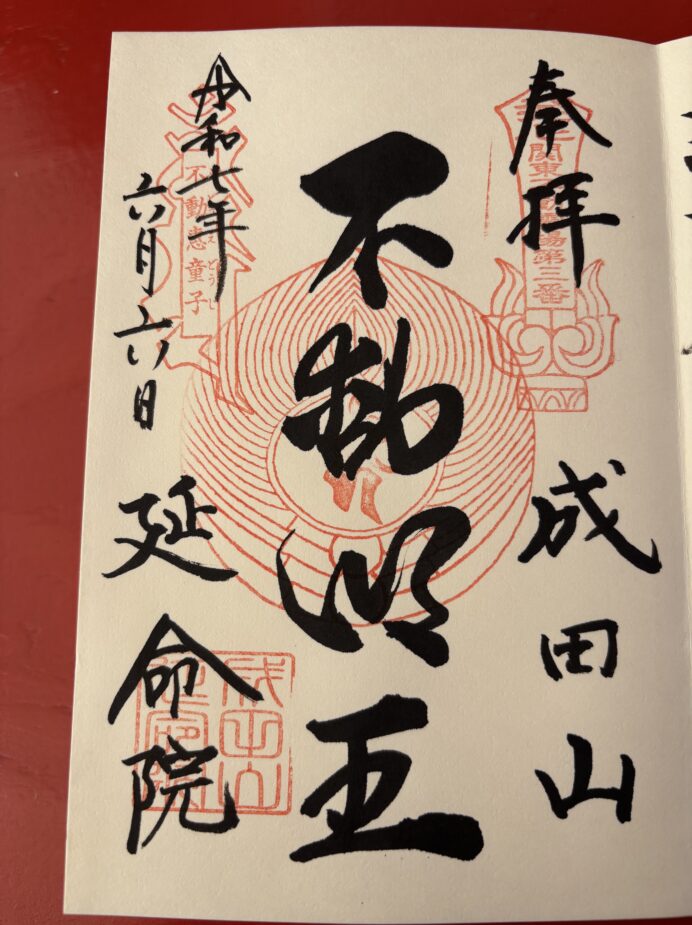 奉拝
関東三十六不動霊場第三番
成田山
不動明王
令和七年
六月六日
不動恵童子
延命院
成田山